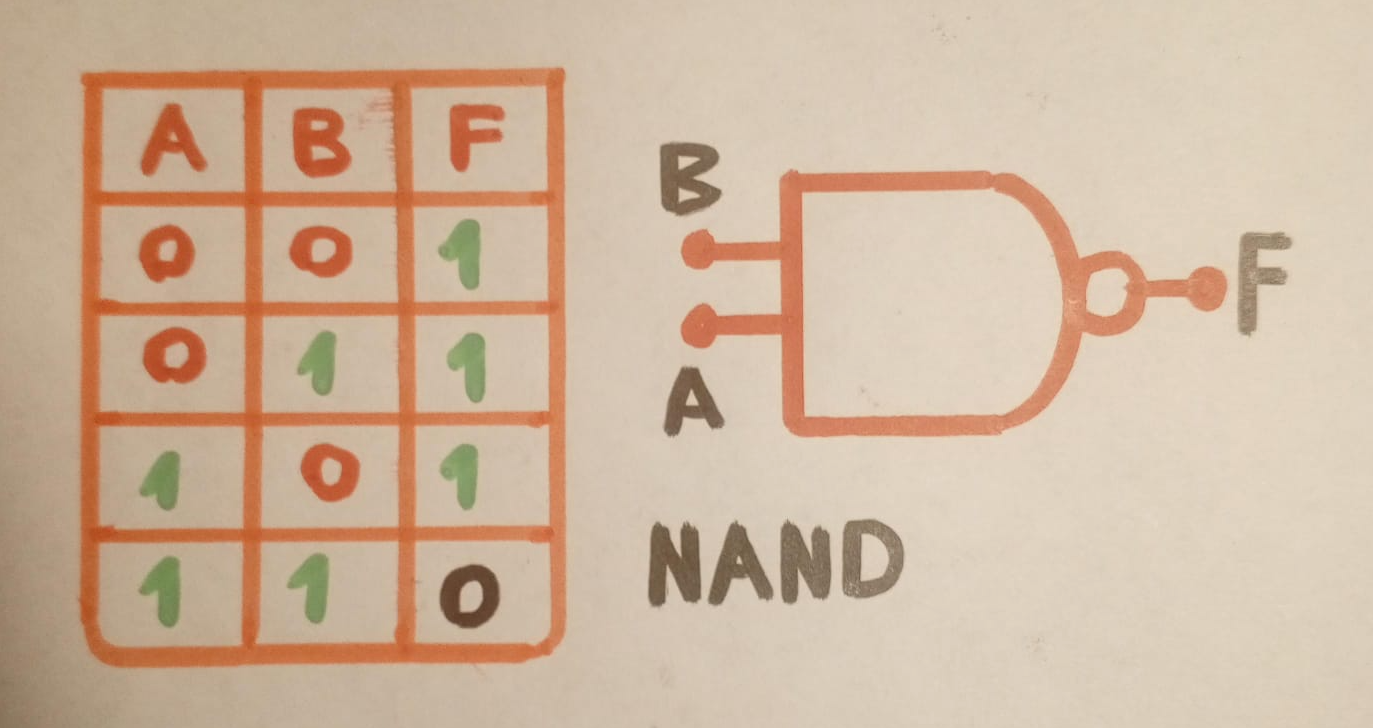 A B F
0 0 1
0 1 1
1 0 1
1 1 0
B
A
F
NAND